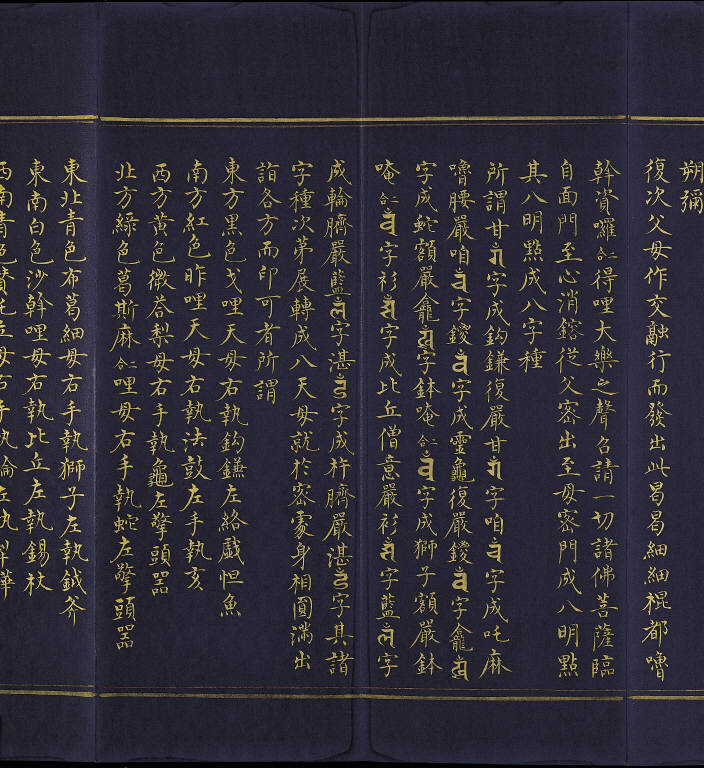 朔彌
復次父母作交融行而發出此曷曷細細棍都嚕
斡資囉仁得哩大樂之聲召請一切諸佛菩薩臨
自面門至心消鎔從父密出至母密門成八明點
其八明點成八字種
所謂甘字成鈎鎌復嚴甘字咱字成吒麻
嚕腰嚴咱字鑁字成靈龜復嚴鑁字龕
字成蛇額嚴龕字鉢唵仁字成獅子額嚴鉢
唵仁字衫字成比丘僧意嚴衫字藍字
成輪臍嚴藍字湛字成杵臍嚴湛字其諸
字種次第展轉成八天母就於密處身相圓滿出
詣各方而印可者所謂
東方黑色戈哩天母右執鈎鎌左絡戲怛魚
南方紅色昨哩天母右執法鼓左手執亥
西方黃色微荅梨母右手執龜左擎頭器
北方綠色葛斯麻仁哩母右手執蛇左擎頭器
東北青色布葛細母右手執獅子左執鉞斧
東南白色沙斡哩母右執比丘左執錫杖
西南青色贊吒丘母右手執輪左執犁